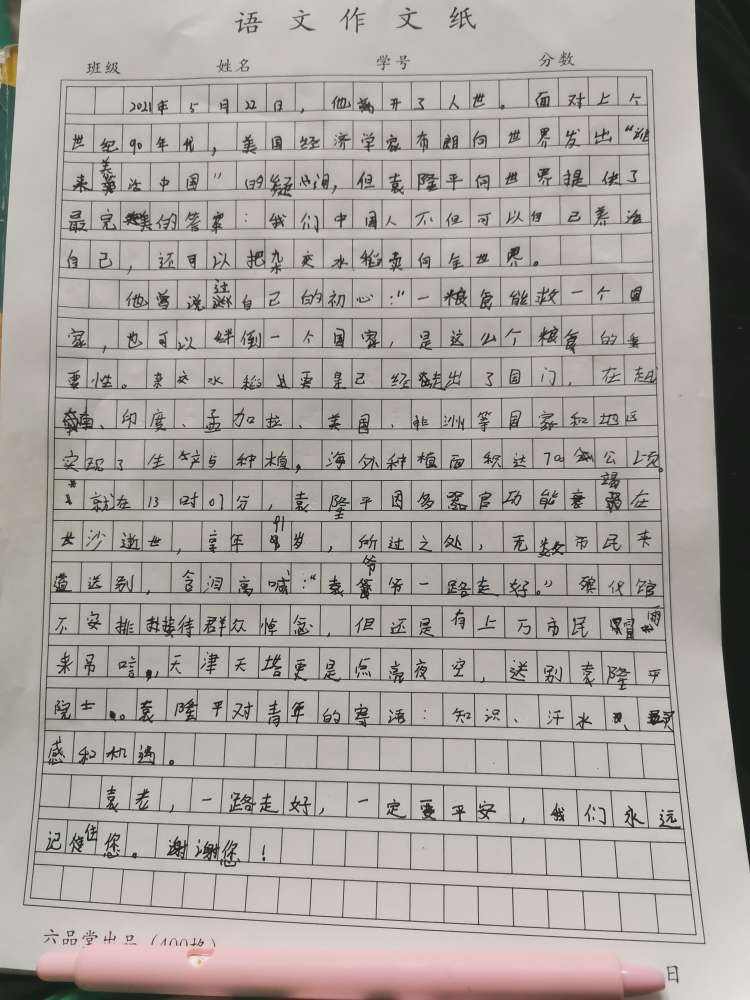 语文作文纸
班级 姓名 学号 分数
2021年5月22日，他离开了人世。面对上个
世纪90年代，美国经济学家布朗向世界发出“谁
来养活中国”的疑问，但袁隆平向世界提供了
最完美的答案：我们中国人不但可以自己养活
自己，还可以把杂交水稻卖向全世界。
他曾说过自己的初心：“一粮食能救一个国
家，也可以绊倒一个国家，是这么个粮食的重
要性。杂交水稻更是已经走出了国门，在越
南、印度、孟加拉、美国、非洲等国家和地区
实现了生产与种植，海外种植面积达700公顷。
就在13时07分，袁隆平因多器官功能衰竭在
长沙逝世，享年91岁，所过之处，无数市民来
道送别，含泪高喊：“袁爷爷一路走好。”殡仪馆
不安排接待群众悼念，但还是有上万市民冒雨
来吊唁，天津天塔更是点亮夜空，送别袁隆平
院士。袁隆平对青年的寄语：知识、汗水、灵
感和机遇。
袁老，一路走好，一定要平安，我们永远
记住您。谢谢您！
六品堂出品（400格）
日